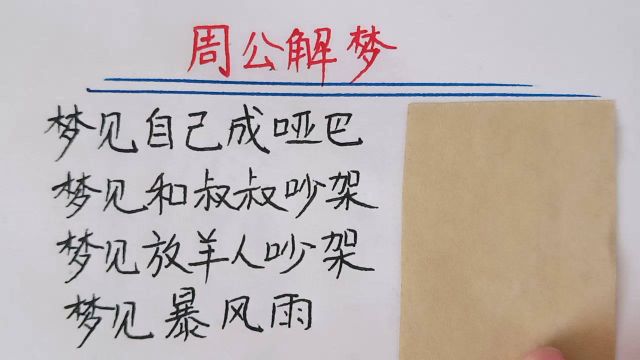 周公解梦
梦见自己成哑巴
梦见和叔叔吵架
梦见放羊人吵架
梦见暴风雨